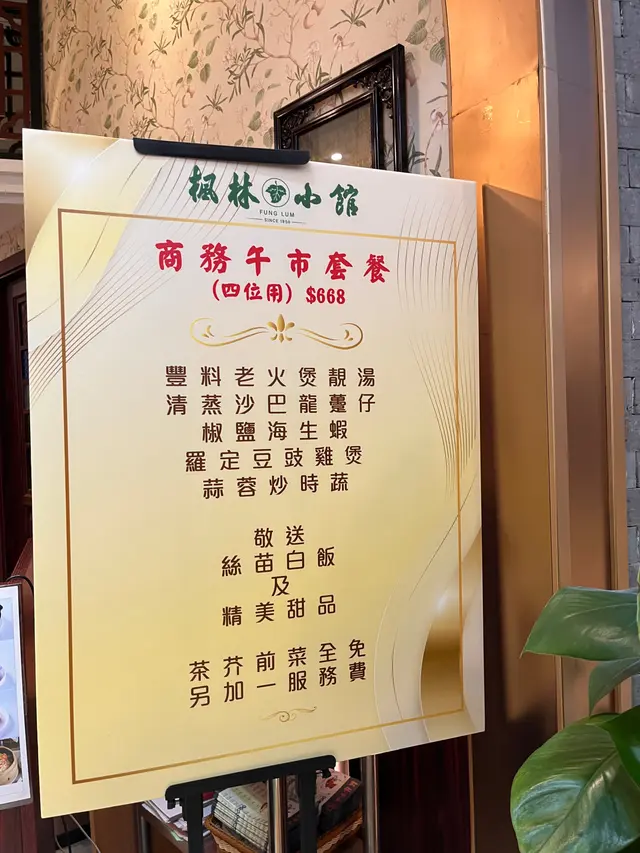 楓林小館
FUNG LUM
SINCE 1954
商務午市套餐
(四位用) $668
豐料老火煲靚湯
清蒸沙巴龍躉仔
椒鹽海生蝦
羅定豆豉雞煲
蒜蓉炒時蔬
敬送
絲苗白飯
及
精美甜品
茶芥前菜全免
另加一服務費